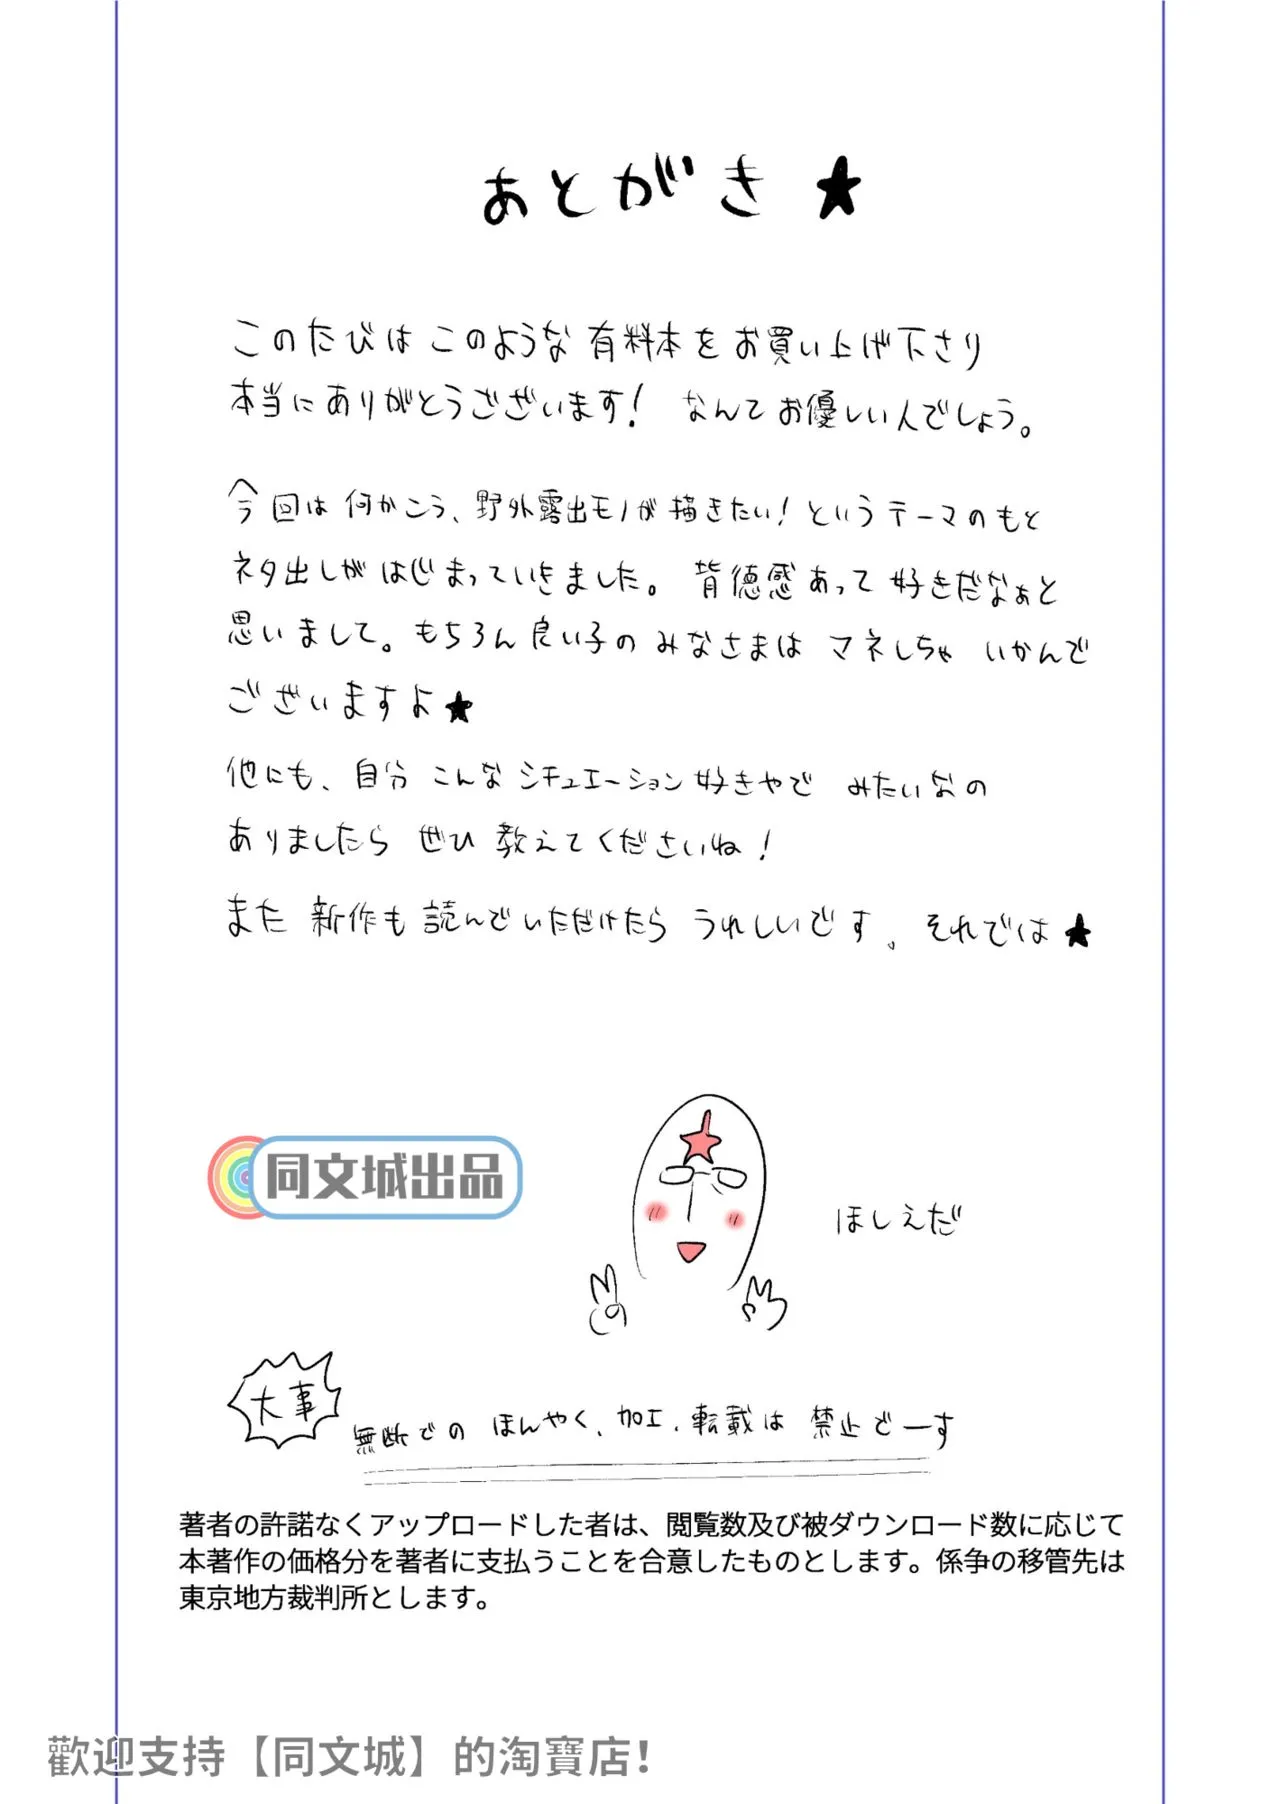 あとがき★
このたびは このような 有料本を お買い上げ下さり
本当にありがとうございます! なんてお優しい人でしょう。
今回は 何かこう、野外露出モノが描きたい!というテーマのもと
ネタ出しが はじまっていきました。 背徳感あって 好きだなぁと
思いまして。もちろん良い子の みなさまは マネしちゃ いかんで
ございますよ★
他にも、自分 こんな シチュエーション好きやで みたいなの
ありましたら ぜひ 教えてくださいね!
また 新作も 読んでいただけたら うれしいです。それでは★
同文城出品
ほしえだ
大事
無断での ほんやく、加工、転載は 禁止でーす
著者の許諾なくアップロードした者は、閲覧数及び被ダウンロード数に応じて
本著作の価格分を著者に支払うことを合意したものとします。係争の移管先は
東京地方裁判所とします。
歡迎支持【同文城】的淘寶店!